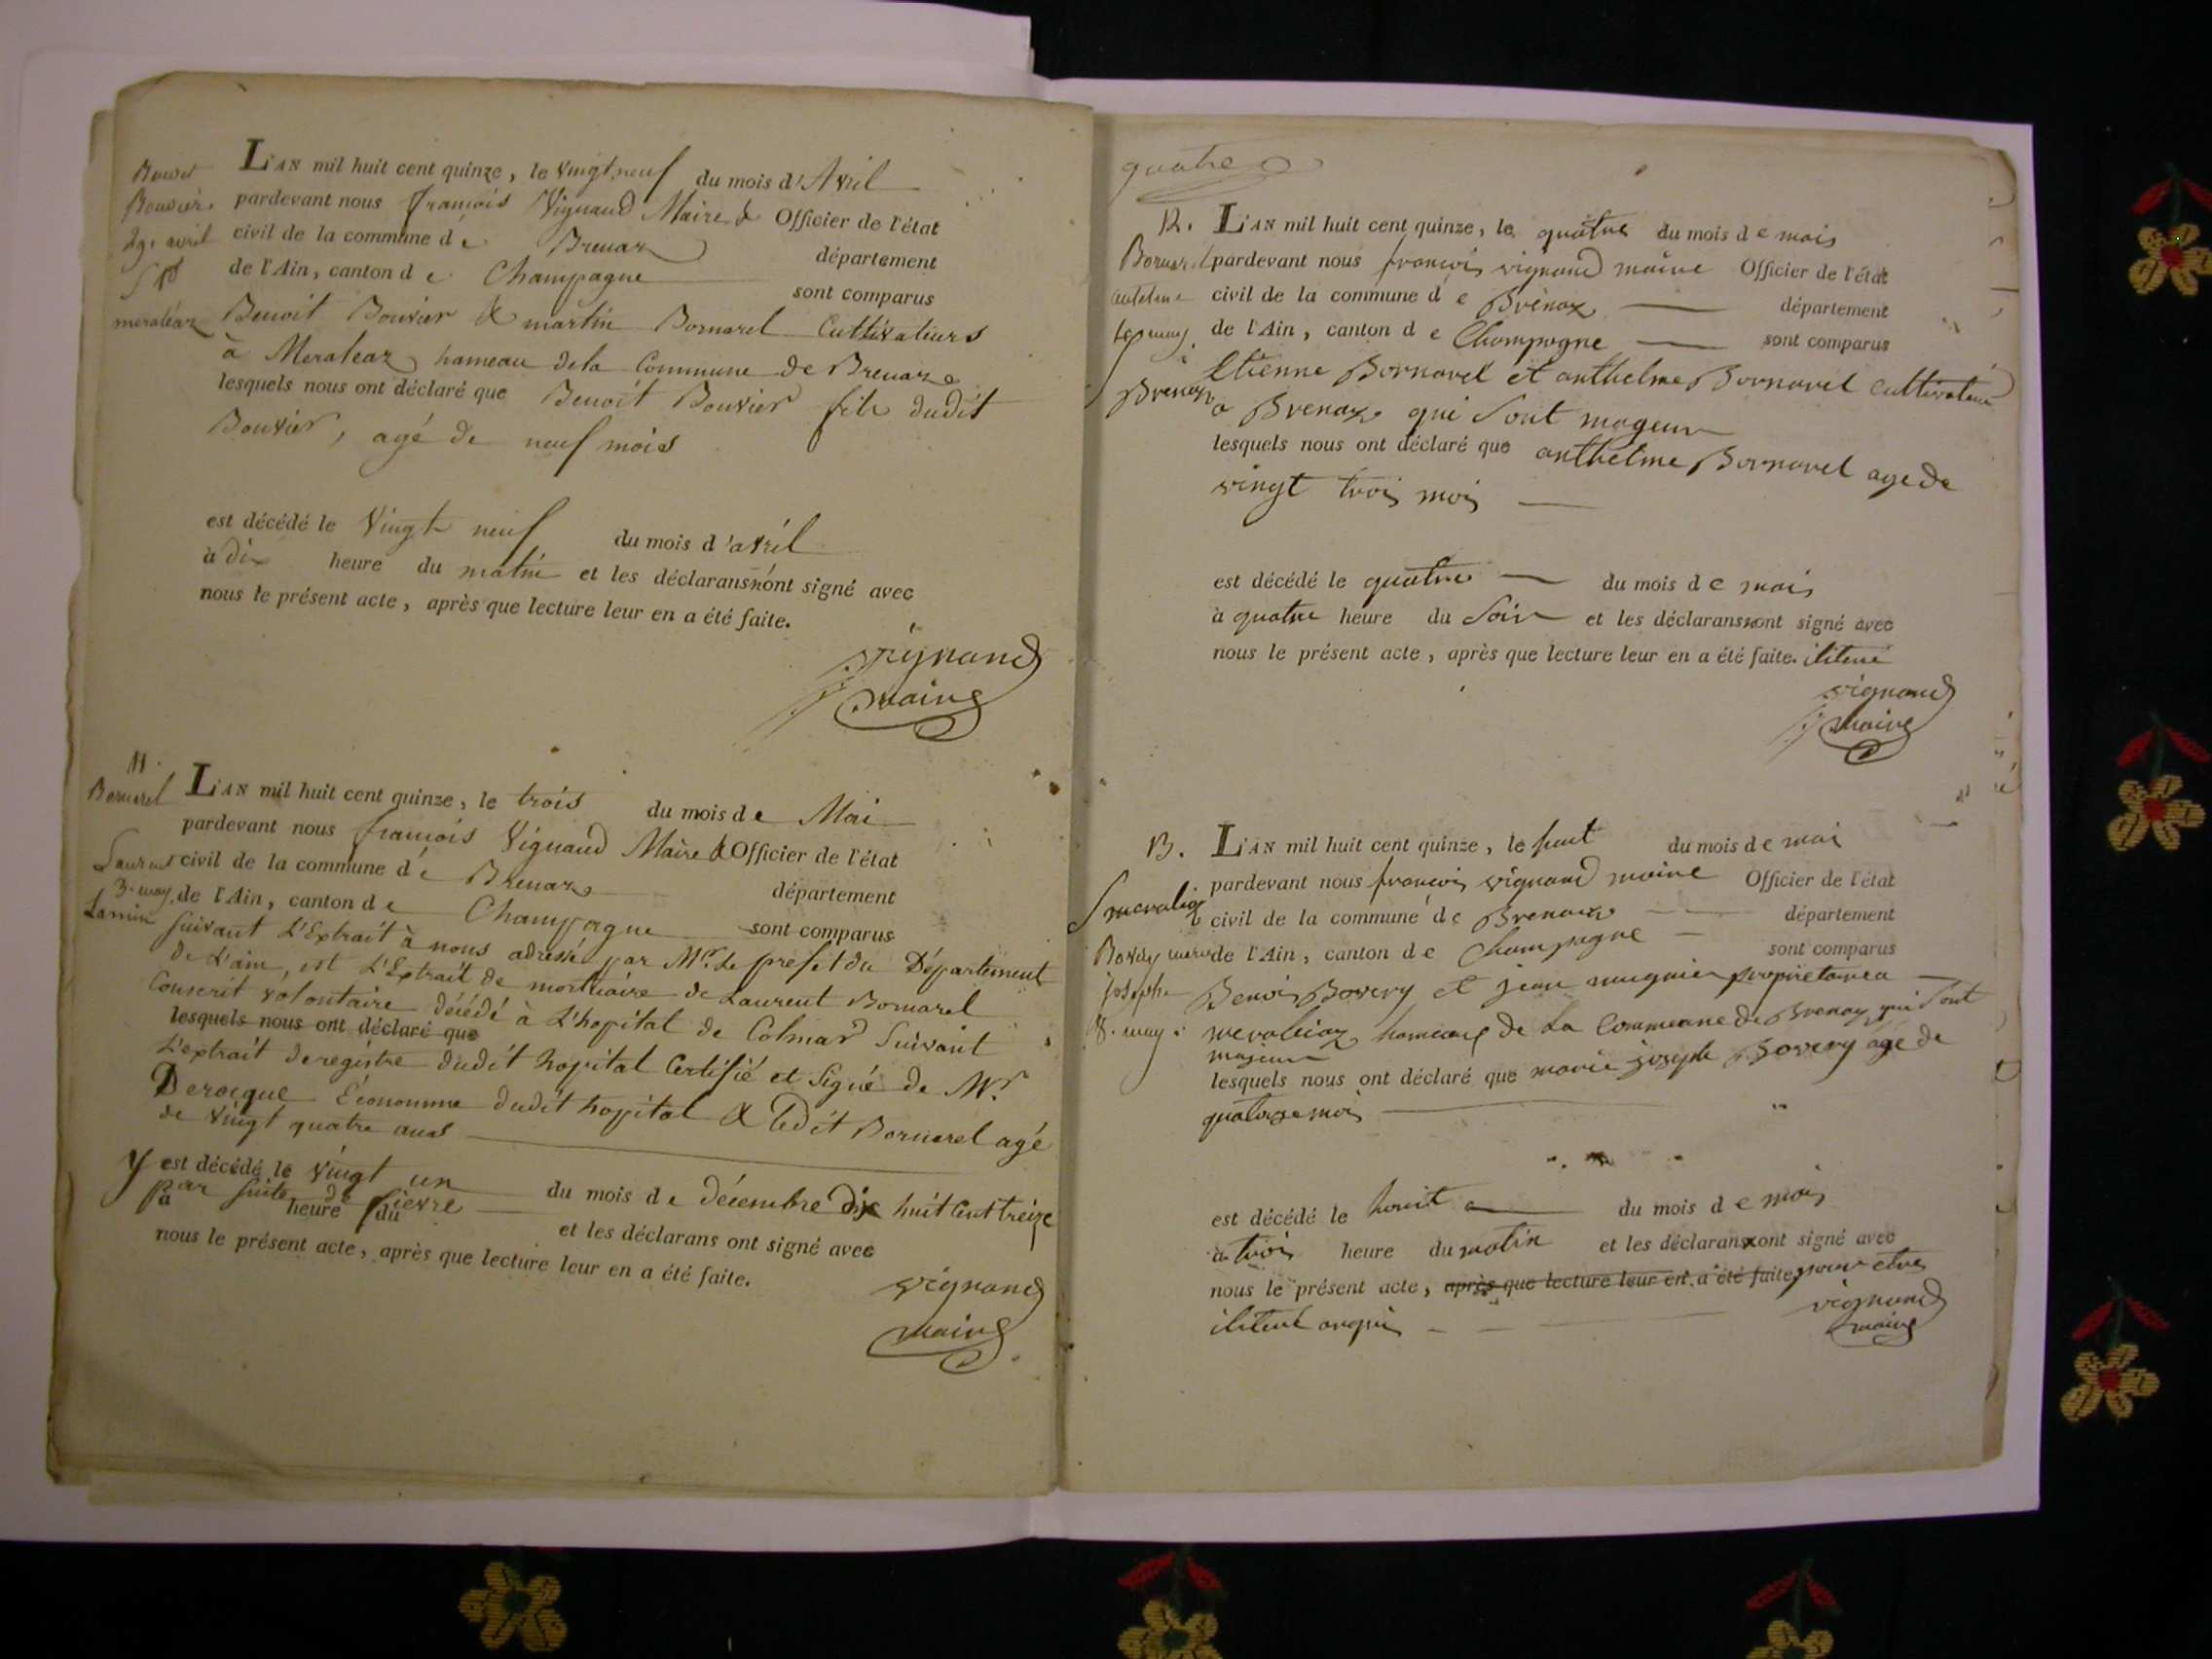 Benoit
Bouvier
29. avril
meraléaz
L'AN mil huit cent quinze, le vingt neuf du mois d'Avril
pardevant nous françois Vignaud Maire & Officier de l'état
civil de la commune de Brenaz département
de l'Ain, canton de Champagne sont comparus
Benoit Bouvier & martin Bornarel Cultivateurs
à Meraleaz hameau dela Commune de Brenaz
lesquels nous ont déclaré que Benoit Bouvier fils dudit
Bouvier, agé de neuf mois
est décédé le Vingt neuf du mois d'avril
à dix heure du matin et les déclarans n'ont signé avec
nous le présent acte, après que lecture leur en a été faite.
vignaud
maire
11.
Bornarel
Laurent
3. may
L'AN mil huit cent quinze, le trois du mois de Mai
pardevant nous françois Vignaud Maire & Officier de l'état
civil de la commune de Brenaz département
de l'Ain, canton de Champagne sont comparus
suivant L'Extrait à nous adressé par Mr. Le prefet du Département
de L'ain, est L'Extrait de mortuaire de Laurent Bornarel
Conscrit volontaire décédé à L'hopital de Colmar Suivant
lesquels nous ont déclaré que
L'extrait deregistre dudit hopital Certifié et Signé de Mr.
Économme dudit hopital & Ledit Bornarel agé
de vingt quatre ans
Y est décédé le vingt un du mois de décembre dix huit Cent treize
par suite de fievre
à heure du et les déclarans ont signé avec
nous le présent acte, après que lecture leur en a été faite.
vignaud
maire
quatre
12.
Bornarel
antelme
4 may.
Brenaz
L'AN mil huit cent quinze, le quatre du mois de mais
pardevant nous françois vignaud maire Officier de l'état
civil de la commune de Brénaz département
de l'Ain, canton de Champagne sont comparus
Etienne Bornarel et anthelme Bornarel cultivateur
a Brenaz qui sont mageur
lesquels nous ont déclaré que anthelme Bornarel age de
vingt trois mois
est décédé le quatre du mois de mais
à quatre heure du Soir et les déclarans nont signé avec
nous le présent acte, après que lecture leur en a été faite. iliteré
vignaud
maire
13.
meraliaz
Bovery marie
joseph
8. may.
L'AN mil huit cent quinze, le huit du mois de mai
pardevant nous françois vignaud maire Officier de l'état
civil de la commune de Brenaz département
de l'Ain, canton de Champagne sont comparus
Benoi Bovery et jean mugnier propietaire a
meraleiaz hameaux de La Commeune de Brenaz qui Sont
majeur
lesquels nous ont déclaré que marie joseph Bovery agé de
quatorze mois
est décédé le houit du mois de mais
à trois heure du matin et les déclarans nont signé avec
nous le présent acte, après que lecture leur en a été faite, pour etre
vignaud
maire